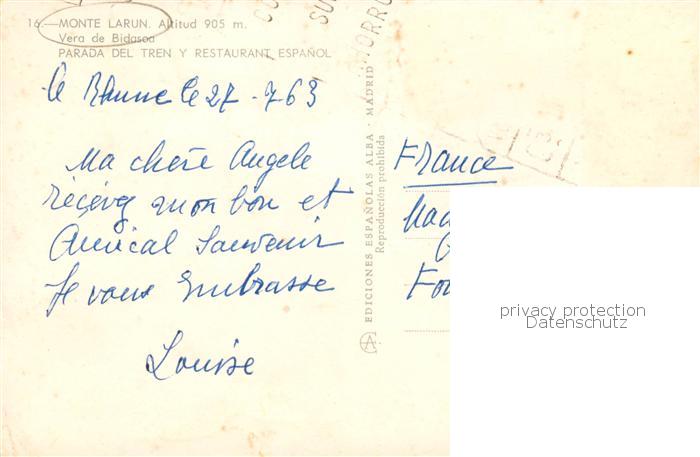 16.—MONTE LARUN. Altitud 905 m.
Vera de Bidasoa
PARADA DEL TREN Y RESTAURANT ESPAÑOL
le Rhune le 27-763
Ma chère Angele
recevez mon bon et
Amical Souvenir
Je vous Embrasse
Louise
EDICIONES ESPAÑOLAS ALBA - MADRID
Reproducción prohibida
CA
HORRO
France
privacy protection
Datenschutz